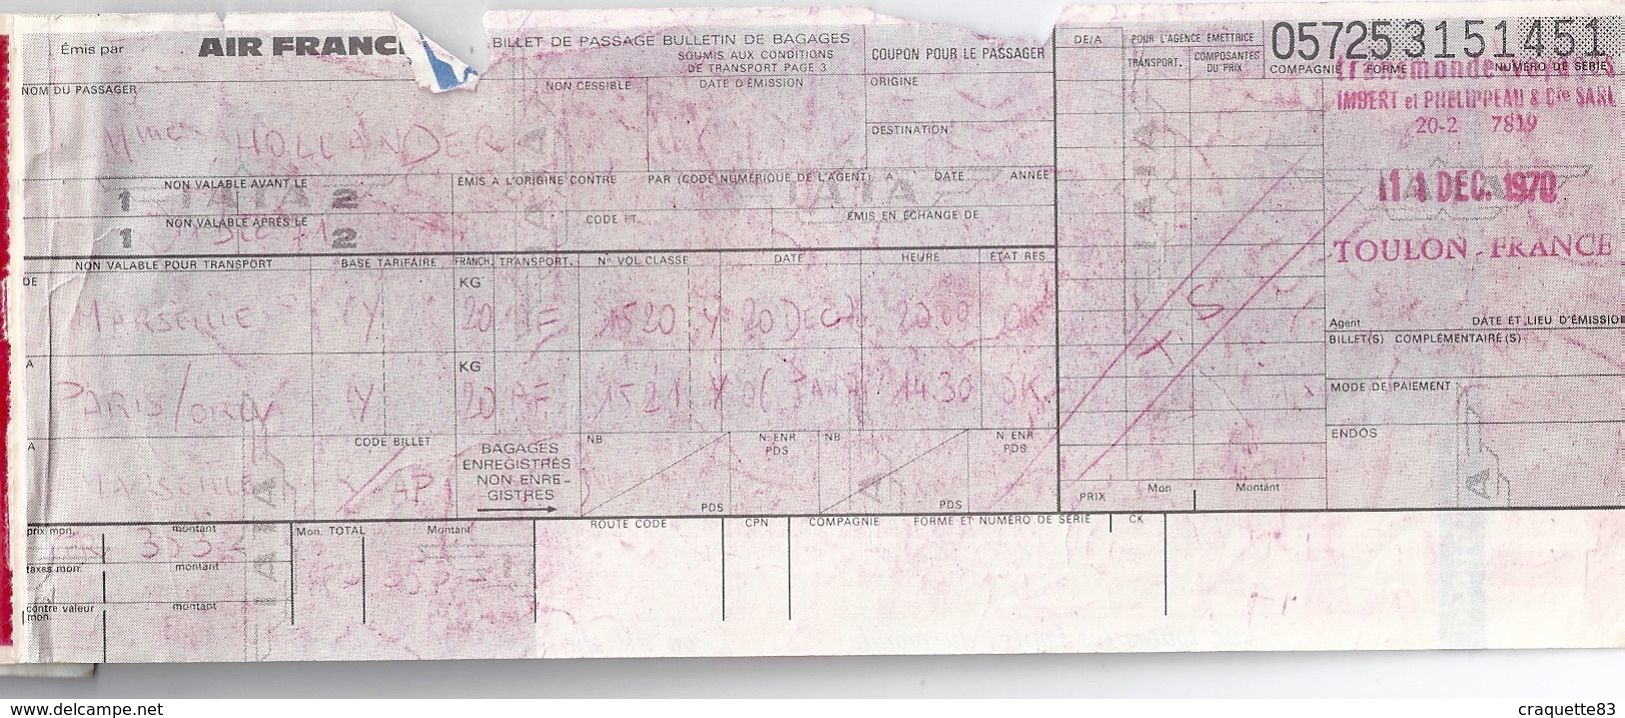 Émis par AIR FRANC BILLET DE PASSAGE BULLETIN DE BAGAGES
SOUMIS AUX CONDITIONS
DE TRANSPORT PAGE 3
COUPON POUR LE PASSAGER
DE/A POUR L'AGENCE ÉMETTRICE
TRANSPORT. COMPOSANTES DU PRIX
05725 3151451
COMPAGNIE FORME NUMÉRO DE SÉRIE
IMBERT et PHELIPPEAU & Cie SARL
20-2 7819
NOM DU PASSAGER NON CESSIBLE DATE D'ÉMISSION ORIGINE
DESTINATION
HOLLANDER
1 NON VALABLE AVANT LE 2 ÉMIS A L'ORIGINE CONTRE PAR (CODE NUMÉRIQUE DE L'AGENT) A DATE ANNÉE
11 DEC. 1970
1 NON VALABLE APRÈS LE 2 CODE IT. ÉMIS EN ÉCHANGE DE
TOULON - FRANCE
NON VALABLE POUR TRANSPORT BASE TARIFAIRE FRANCH. TRANSPORT. N° VOL CLASSE DATE HEURE ÉTAT RES
DE MARSEILLE Y KG 20 AF 1520 Y 20 DEC 22 00 OK
T. S.
Agent DATE ET LIEU D'ÉMISSION
BILLET(S) COMPLÉMENTAIRE(S)
A PARIS/ORLY Y KG 20 AF 1521 Y 06 JAN 14.30 OK
MODE DE PAIEMENT
ENDOS
A MARSEILLE CODE BILLET Y AP
BAGAGES ENREGISTRÉS NON ENREGISTRÉS
NB PDS N. ENR PDS NB PDS N. ENR PDS
PRIX Mon Montant
prix mon. montant Mon. TOTAL Montant ROUTE CODE CPN COMPAGNIE FORME ET NUMÉRO DE SÉRIE CK
taxes mon. montant
contre valeur mon. montant
www.delcampe.net craquette83